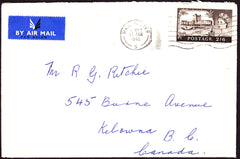 BY AIR MAIL
POSTAGE 2/6
Mr R G Ritchie
545 Burne Avenue
Kelowna B.C.
Canada.